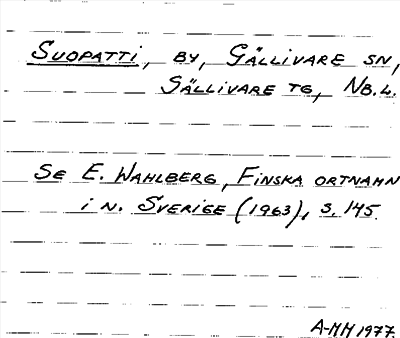 SUOPATTI, BY, GÄLLIVARE SN,
GÄLLIVARE TG, NB.L.
SE E. WAHLBERG, FINSKA ORTNAMN
i N. SVERIGE (1963), S. 145.
A-MH 1977.